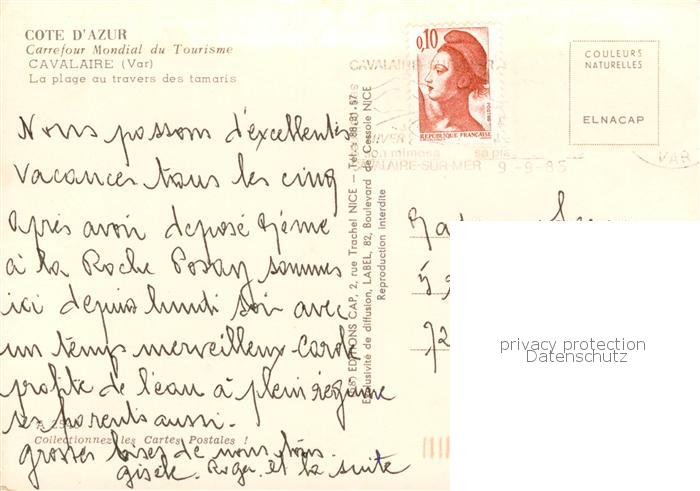 COTE D'AZUR
Carrefour Mondial du Tourisme
CAVALAIRE (Var)
La plage au travers des tamaris
Nous passons d'excellentes
vacances tous les cinq
après avoir déposé
à la Roche Posay sommes
ici depuis lundi soir avec
un temps merveilleux. Carole
profite de l'eau à plein régime
ses parents aussi.
grosses bises de nous tous.
gisèle. Roger. et la suite
Collectionnez les Cartes Postales !
EDITIONS CAP, 2, rue Trachel NICE - Tel. 88.81.57
Exclusivité de diffusion, LABEL, 82, Boulevard de Cessole NICE
Reproduction interdite
0,10
REPUBLIQUE FRANÇAISE
son mimosa
CAVALAIRE-SUR-MER 9-9-85
VAR
COULEURS
NATURELLES
ELNACAP
72
privacy protection
Datenschutz